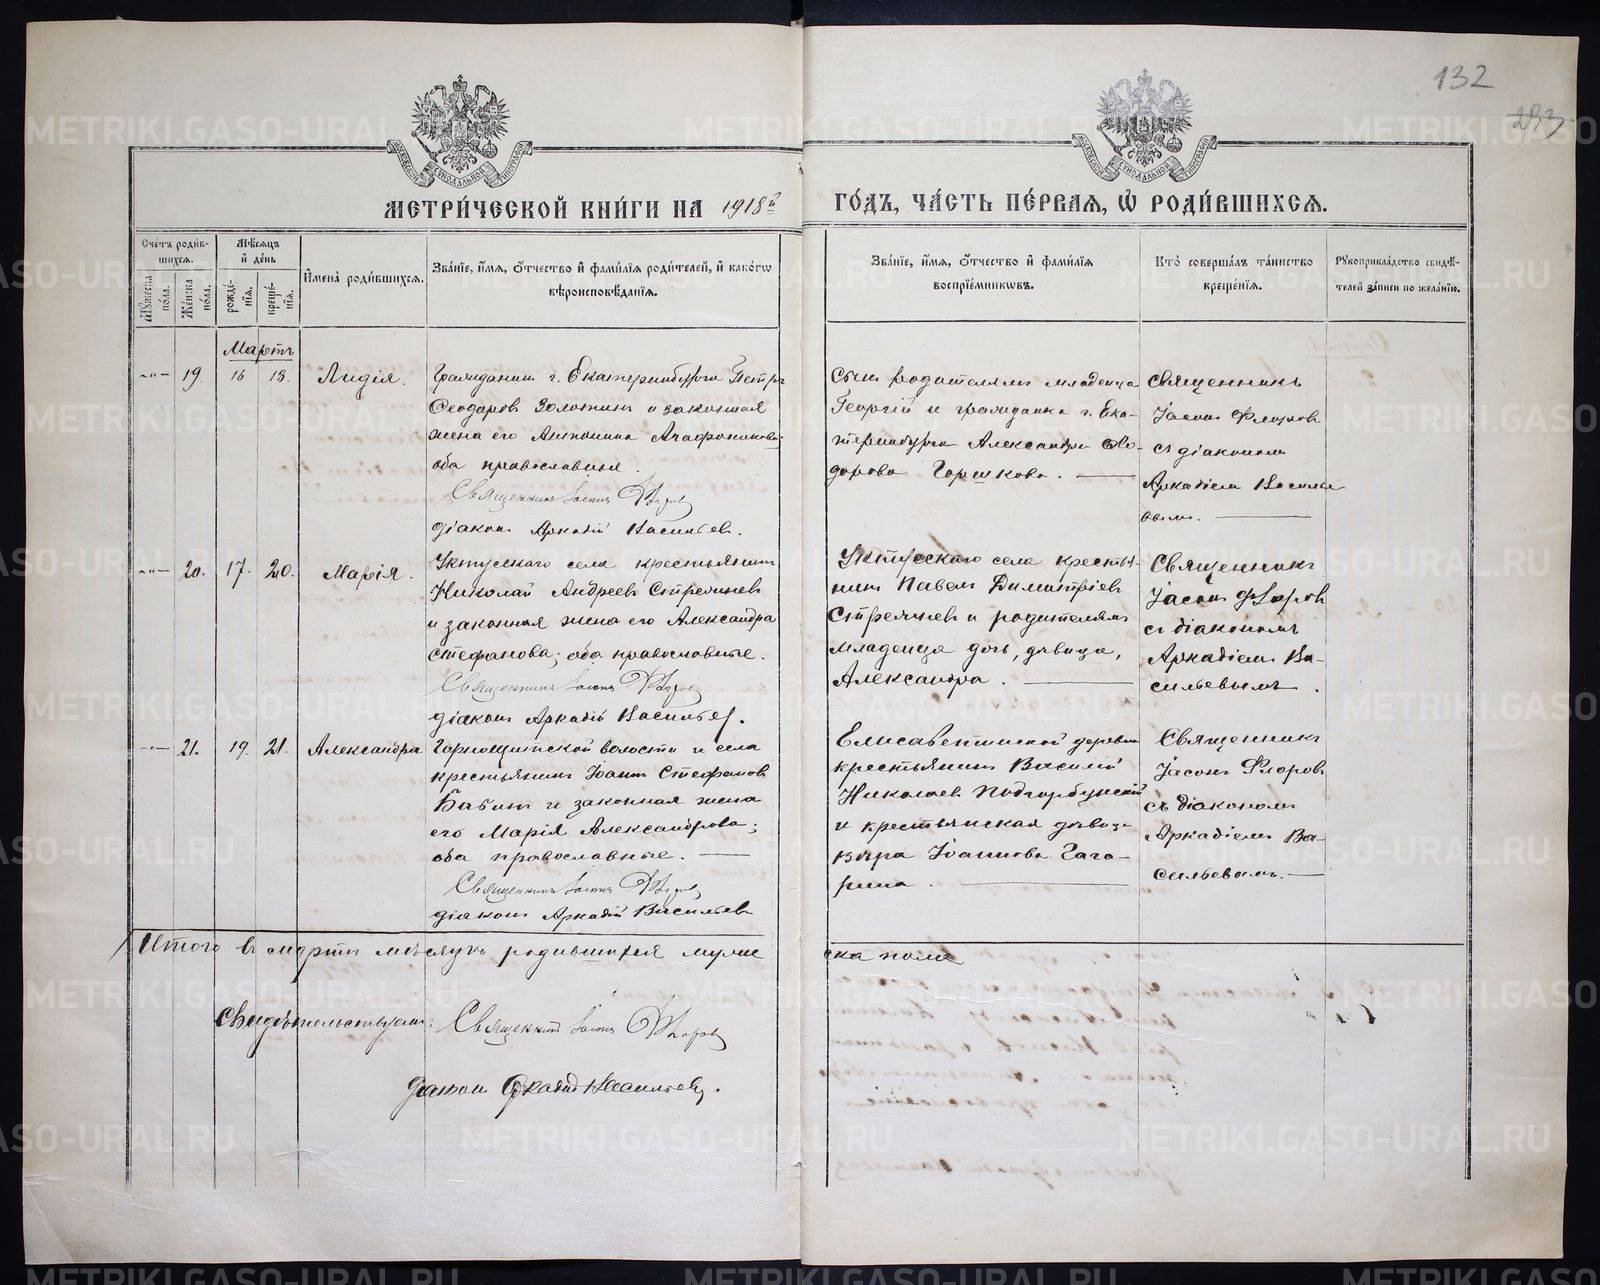 132
293
МОСКОВСКОЙ СУНОДАЛЬНОЙ ТИПОГРАФІИ
МОСКОВСКОЙ СУНОДАЛЬНОЙ ТИПОГРАФІИ
МЕТРИ́ЧЕСКОЙ КНИ́ГИ НА 1918й
ГО́ДЪ, ЧА́СТЬ ПЕ́РВАЯ, Ѡ РОДИ́ВШИХСЯ.
Сче́тъ роди́в-
шихся.
Му́жеска по́ла.
Же́нска по́ла.
Мѣ́сяцъ
и де́нь
рожде́-
нія.
креще́-
нія.
Имена̀ роди́вшихся.
Зва́ніе, и́мя, о́тчество и фами́лія роди́телей, и како́гѡ
вѣроисповѣ́данія.
Зва́ніе, и́мя, о́тчество и фами́лія
воспріе́мниковъ.
Кто̀ соверша́лъ та́инство
креще́нія.
Рукоприкла́дство свидѣ́-
телей за́писи по жела́нію.
Мартъ
-"- 19. 16 18. Лидія.
Гражданинъ г. Екатеринбурга Петръ
Ѳеодоровъ Золотинъ и законная
жена его Антонина Агафоникова;
оба православные.
Священникъ Іасонъ Флоровъ
діаконъ Аркадій Васильев.
Сынъ родителямъ младенца
Георгій и гражданка г. Ека-
теринбурга Александра Ѳео-
дорова Горшкова. —
Священникъ
Іасонъ Флоровъ
съ діакономъ
Аркадіем Василье-
вымъ. —
-"- 20. 17. 20. Марія.
Уктусскаго села крестьянинъ
Николай Андреев Стрелневъ
и законная жена его Александра
Стефанова; оба православные.
Священникъ Іасонъ Флоровъ
діаконъ Аркадій Васильев.
Уктусскаго села крестья-
нинъ Павелъ Димитріев
Стрелневъ и родителямъ
младенца дочь, дѣвица,
Александра. —
Священникъ
Іасонъ Флоровъ
съ діакономъ
Аркадіем Ва-
сильевымъ.
-"- 21. 19. 21. Александра
Горнощитской волости и села
крестьянинъ Іоаннъ Стефановъ
Бабинъ и законная жена
его Марія Александрова;
оба православные. —
Священникъ Іасонъ Флоровъ
діаконъ Аркадій Васильев
Елисаветинской деревни
крестьянинъ Василій
Николаев Подгорбунскій
и крестьянская дѣвица
Вѣра Іоаннова Гага-
рина. —
Священникъ
Іасонъ Флоровъ
съ діакономъ
Аркадіем Ва-
сильевым. —
Итого въ мартѣ мѣсяцѣ родившихся муже
ска пола
Свидѣтельствуютъ: Священникъ Іасонъ Флоровъ
Діаконъ Аркадій Васильевъ.
METRIKI.GASO-URAL.RU